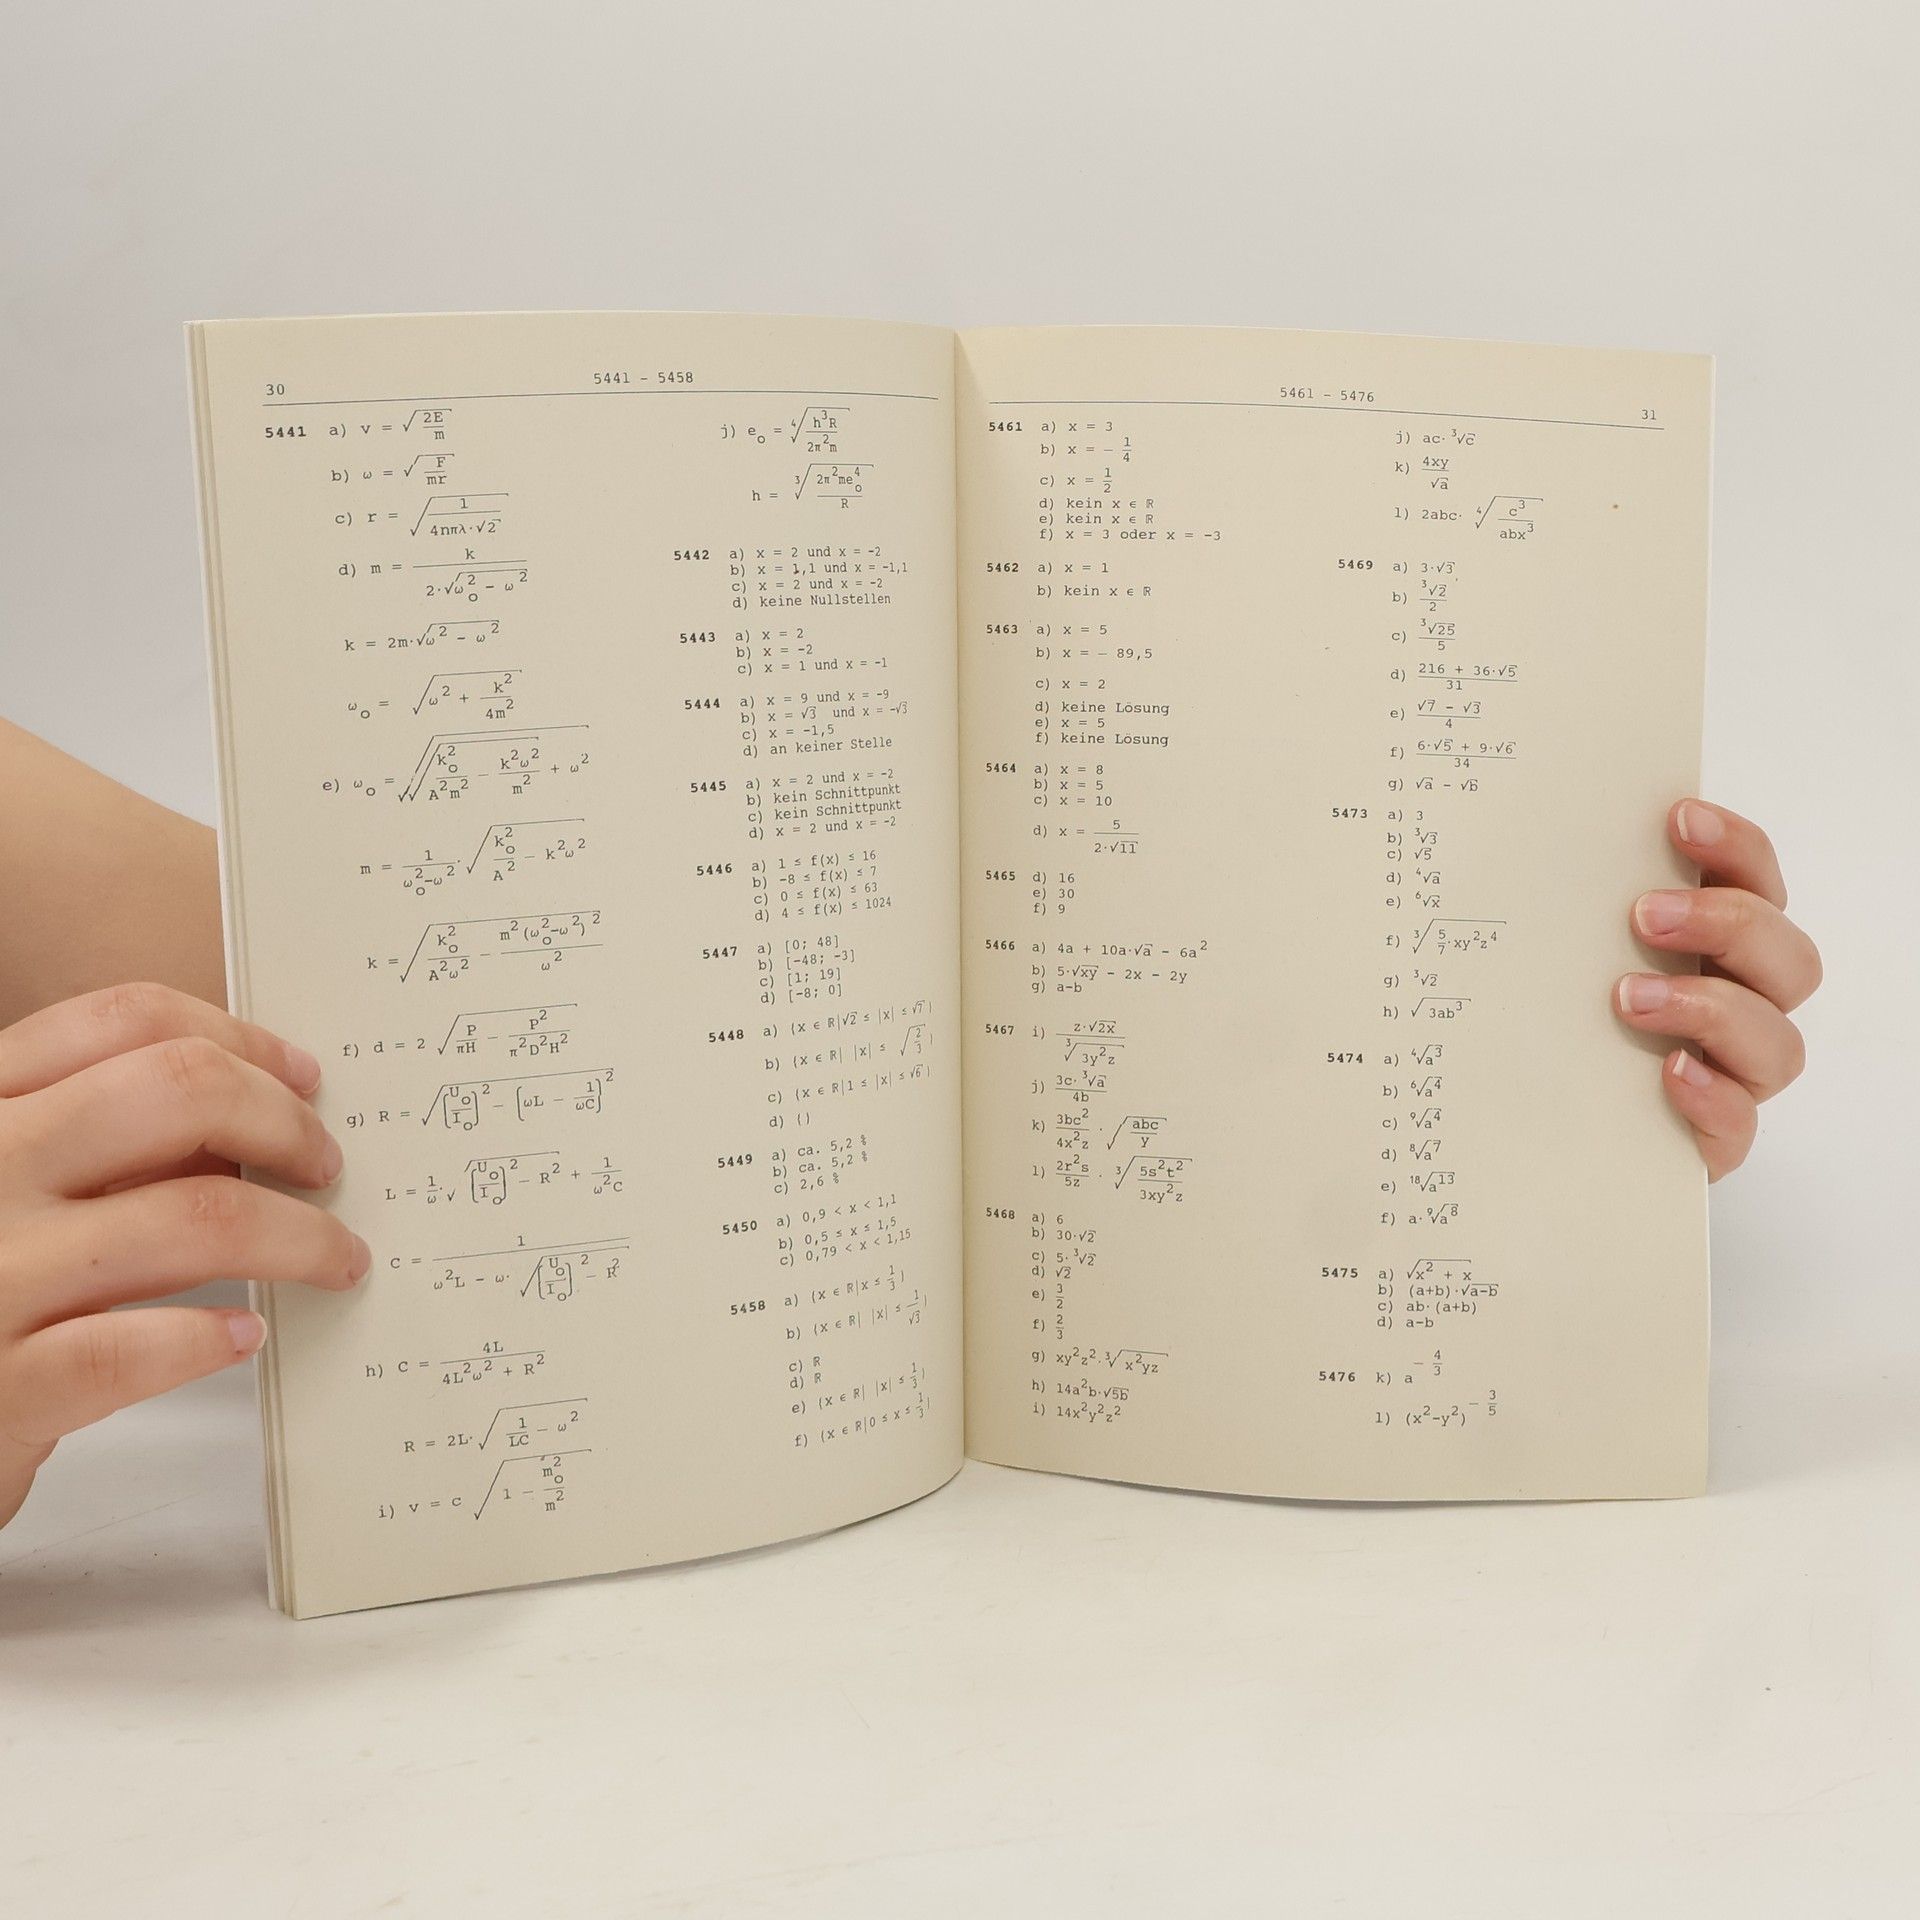 30
5441 - 5458
5441 a) v = √(2E/m)
b) ω = √(F/mr)
c) r = √(1/(4nπλ·√2))
d) m = k/(2·√(ω₀² - ω²))
k = 2m·√(ω² - ω²)
ω₀ = √(ω² + k²/4m²)
e) ω₀ = √(√(k₀²/A²m² - k²ω²/m²) + ω²)
m = 1/(ω₀²-ω²)·√(k₀²/A² - k²ω²)
k = √(k₀²/A²ω² - m²(ω₀²-ω²)²/ω²)
f) d = 2 √(P/πH - P²/π²D²H²)
g) R = √((U₀/I₀)² - (ωL - 1/ωC)²)
L = 1/ω·√((U₀/I₀)² - R²) + 1/ω²C
C = 1/(ω²L - ω·√((U₀/I₀)² - R²))
h) C = 4L/(4L²ω² + R²)
R = 2L·√(1/LC - ω²)
i) v = c √(1 - m₀²/m²)
j) e₀ = ⁴√(h³R/2π²m)
h = ³√(2π²me₀⁴/R)
5442 a) x = 2 und x = -2
b) x = 1,1 und x = -1,1
c) x = 2 und x = -2
d) keine Nullstellen
5443 a) x = 2
b) x = -2
c) x = 1 und x = -1
5444 a) x = 9 und x = -9
b) x = √3 und x = -√3
c) x = -1,5
d) an keiner Stelle
5445 a) x = 2 und x = -2
b) kein Schnittpunkt
c) kein Schnittpunkt
d) x = 2 und x = -2
5446 a) 1 ≤ f(x) ≤ 16
b) -8 ≤ f(x) ≤ 7
c) 0 ≤ f(x) ≤ 63
d) 4 ≤ f(x) ≤ 1024
5447 a) [0; 48]
b) [-48; -3]
c) [1; 19]
d) [-8; 0]
5448 a) {x ∈ ℝ|√2 ≤ |x| ≤ √7}
b) {x ∈ ℝ| |x| ≤ √(2/3)}
c) {x ∈ ℝ|1 ≤ |x| ≤ √6}
d) {}
5449 a) ca. 5,2 %
b) ca. 5,2 %
c) 2,6 %
5450 a) 0,9 < x < 1,1
b) 0,5 ≤ x ≤ 1,5
c) 0,79 < x < 1,15
5458 a) {x ∈ ℝ|x ≤ 1/3}
b) {x ∈ ℝ| |x| ≤ 1/√3}
c) ℝ
d) ℝ
e) {x ∈ ℝ| |x| ≤ 1/3}
f) {x ∈ ℝ|0 ≤ x ≤ 1/3}
5461 - 5476
31
5461 a) x = 3
b) x = - 1/4
c) x = 1/2
d) kein x ∈ ℝ
e) kein x ∈ ℝ
f) x = 3 oder x = -3
5462 a) x = 1
b) kein x ∈ ℝ
5463 a) x = 5
b) x = - 89,5
c) x = 2
d) keine Lösung
e) x = 5
f) keine Lösung
5464 a) x = 8
b) x = 5
c) x = 10
d) x = 5/(2·√11)
5465 d) 16
e) 30
f) 9
5466 a) 4a + 10a·√a - 6a²
b) 5·√xy - 2x - 2y
g) a-b
5467 i) z·√2x/³√(3y²z)
j) 3c·³√a/4b
k) 3bc²/4x²z · √(abc/y)
l) 2r²s/5z · ³√(5s²t²/3xy²z)
5468 a) 6
b) 30·√2
c) 5·³√2
d) √2
e) 3/2
f) 2/3
g) xy²z²·³√(x²yz)
h) 14a²b·√5b
i) 14x²y²z²
j) ac·³√c
k) 4xy/√a
l) 2abc·⁴√(c³/abx³)
5469 a) 3·√3
b) ³√2/2
c) ³√25/5
d) (216 + 36·√5)/31
e) (√7 - √3)/4
f) (6·√5 + 9·√6)/34
g) √a - √b
5473 a) 3
b) ³√3
c) √5
d) ⁴√a
e) ⁶√x
f) ³√(5/7·xy²z⁴)
g) ³√2
h) √(3ab³)
5474 a) ⁴√a³
b) ⁶√a⁴
c) ⁹√a⁴
d) ⁸√a⁷
e) ¹⁸√a¹³
f) a·⁹√a⁸
5475 a) √(x² + x)
b) (a+b)·√(a-b)
c) ab·(a+b)
d) a-b
5476 k) a^(- 4/3)
l) (x²-y²)^(- 3/5)